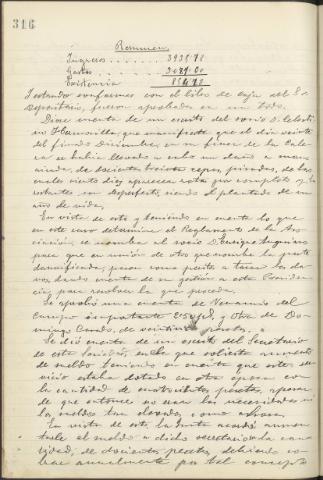 316
Resumen
Ingresos . . . . . . 3938'78
Gastos . . . . . . 3084'00
Existencia . . . . . 854'78
Y estando conformes con el libro de caja del
Depositario, fueron aprobadas en un todo.
Diose cuenta de un escrito del socio D. Celesti
no que manifiesta que el dia veinte
del finado Diciembre, en su finca de la Cale
ra se habia llevado a cabo un daño a mano
de cepas, de las
cuales siento diez aparecen rotas por completo y las
restantes con desperfecto, siendo el plantado de un
año de vida.
En vista de esto y teniendo en cuenta lo que
en este caso determina el Reglamento de la Aso
ciación, se nombra al socio D. Enrique
para que en unión de otro que nombre la parte
damnificada, pasen como peritos a tasar los da
ños dando cuenta de su gestión a esta Presiden
cia, para resolver lo que proceda.
Se aprobó una cuenta de Venancio del
Campo importante y otra de Do
mingo de veintiuna pesetas.
Se dió cuenta de un escrito del Secretario
de esta Sociedad en la que solicita aumento
de sueldo teniendo en cuenta que este ser
vicio estaba dotado en otra época con
la cantidad de pesetas, apesar
de que entonces no eran las necesidades ni
los sueldos tan elevados como ahora.
En vista de esto, la Junta acordó aumen
tarle el sueldo a dicho secretario a la can
tidad, de doscientas pesetas, debiendo co
brar anualmente por tal concepto